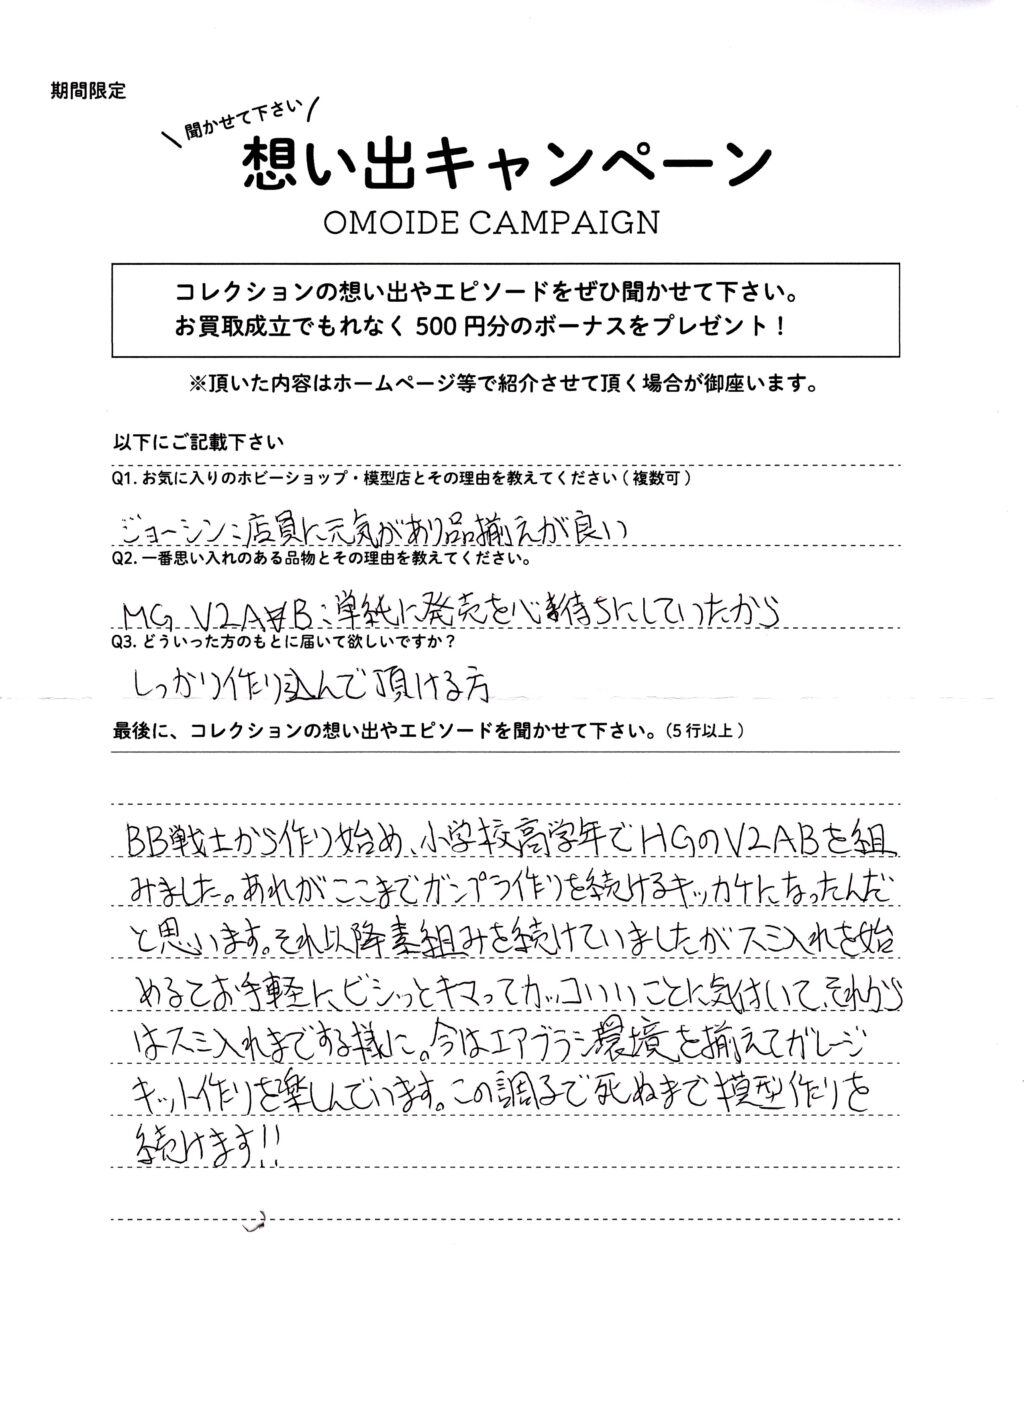 期間限定
聞かせて下さい
想い出キャンペーン
OMOIDE CAMPAIGN
コレクションの想い出やエピソードをぜひ聞かせて下さい。
お買取成立でもれなく 500 円分のボーナスをプレゼント！
※頂いた内容はホームページ等で紹介させて頂く場合が御座います。
以下にご記載下さい
Q1. お気に入りのホビーショップ・模型店とその理由を教えてください ( 複数可 )
ジョーシン：店員に元気があり品揃えが良い
Q2. 一番思い入れのある品物とその理由を教えてください。
MG V2AB：単純に発売を心待ちにしていたから
Q3. どういった方のもとに届いて欲しいですか？
しっかり作り込んで頂ける方
最後に、コレクションの想い出やエピソードを聞かせて下さい。(5 行以上 )
BB戦士から作り始め、小学校高学年でHGのV2ABを組
みました。あれがここまでガンプラ作りを続けるキッカケになったんだ
と思います。それ以降素組みを続けていましたがスミ入れを始
めるてお手軽に、ビシッとキマってカッコいいことに気付いて、それから
はスミ入れまでする様に。今はエアブラシ環境を揃えてガレージ
キット作りを楽しんでいます。この調子で死ぬまで模型作りを
続けます!!